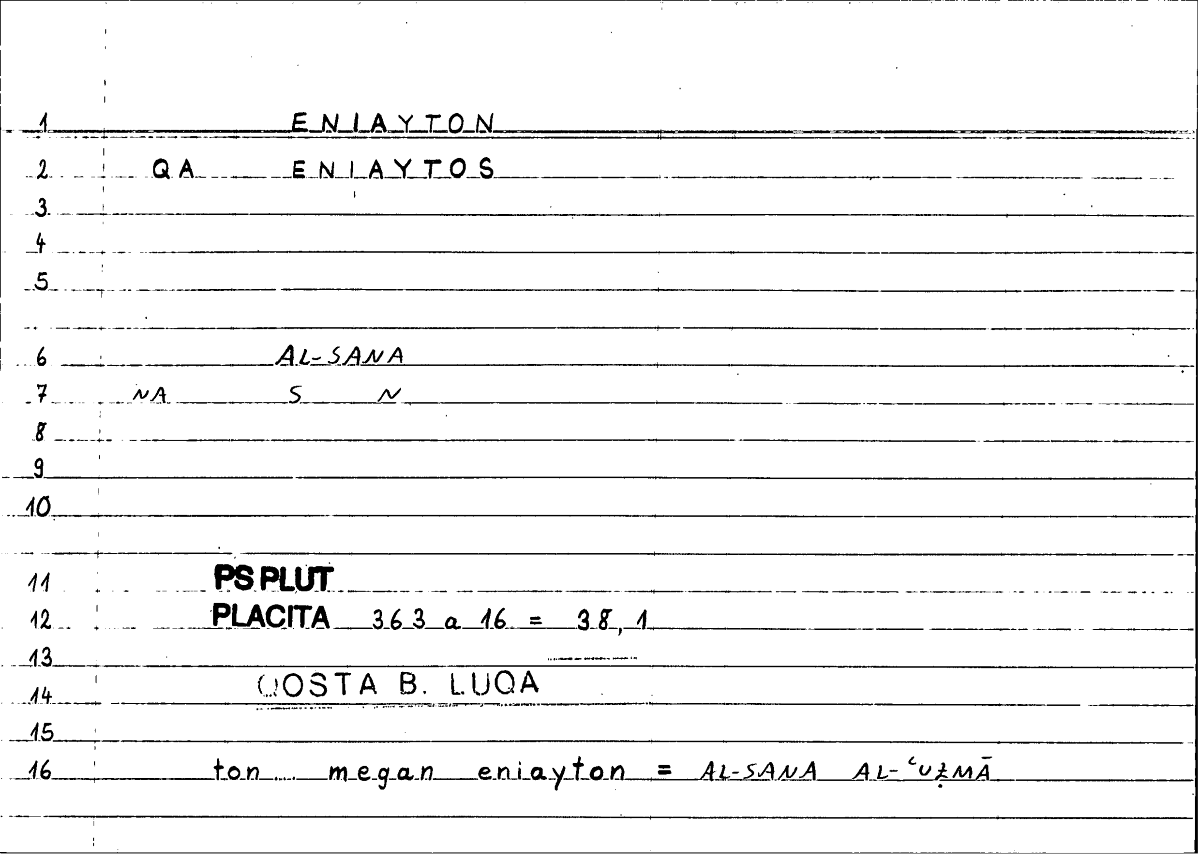 1 ENIAYTON
2 QA ENIAYTOS
3
4
5
6 AL-SANA
7 NA S N
8
9
10
11 PS PLUT
12 PLACITA 363 a 16 = 38,1
13
14 QOSTA B. LUQA
15
16 ton megan eniayton = AL-SANA AL-ʿUẒMĀ